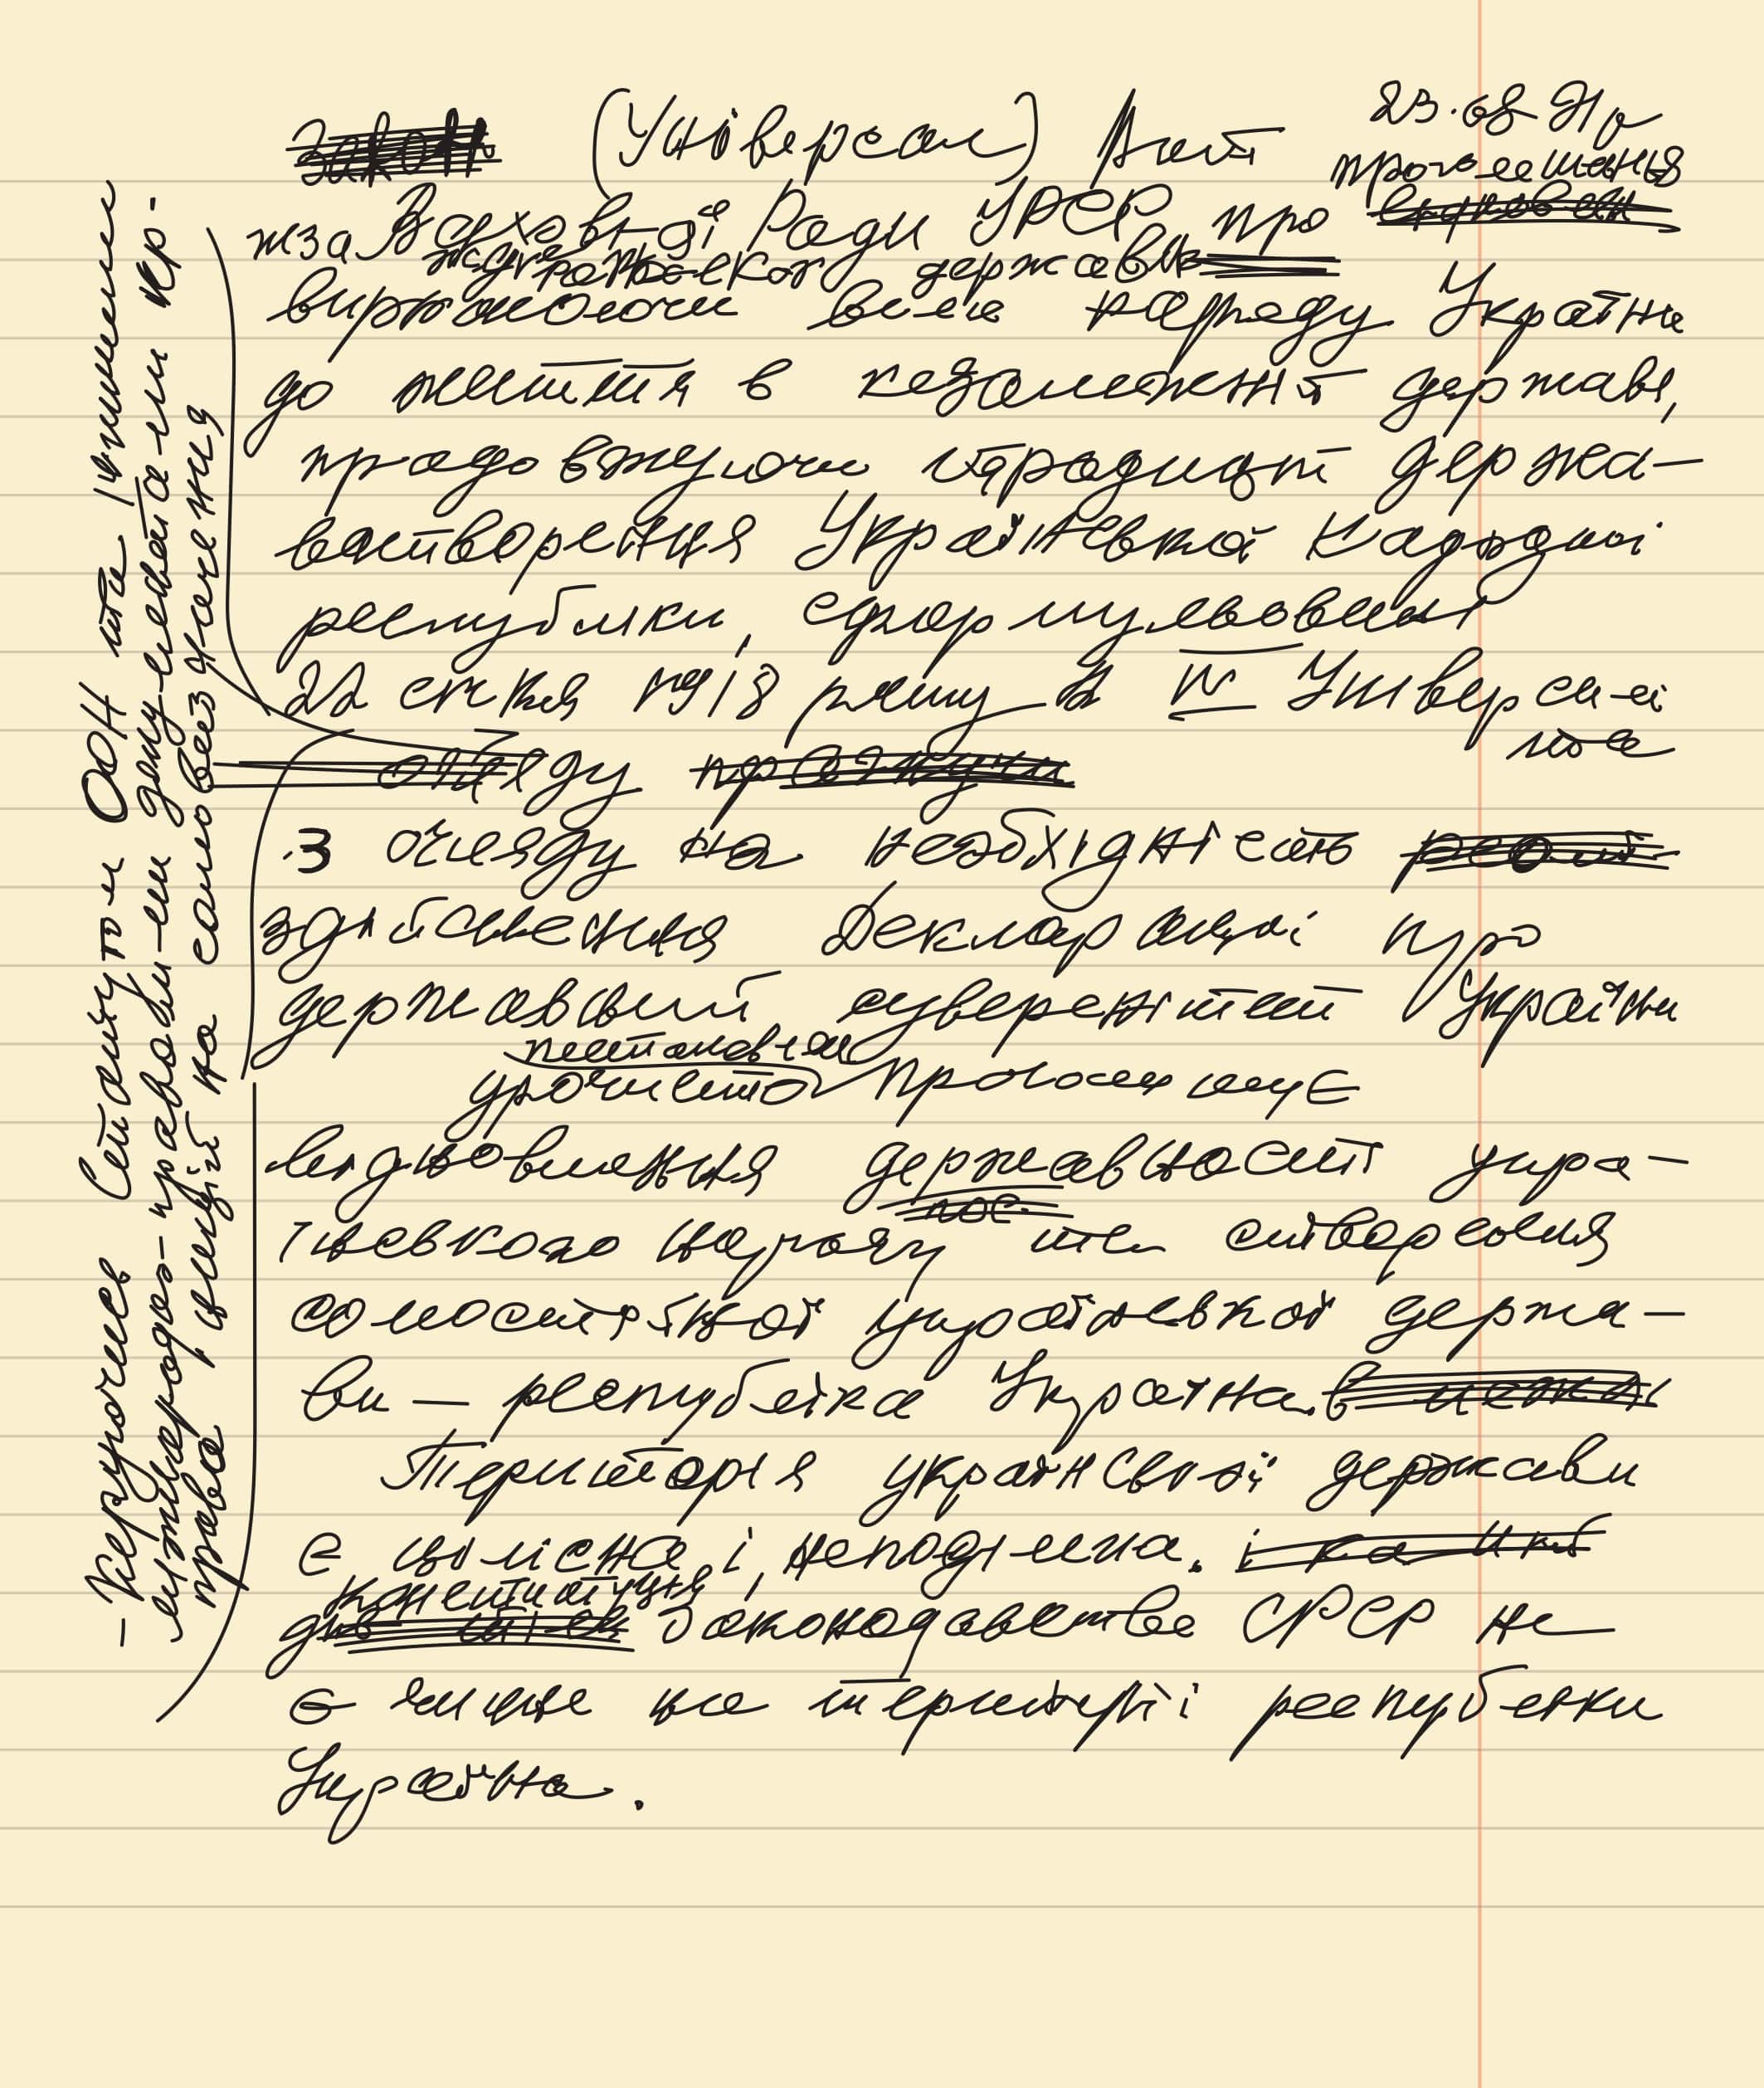 23.08.91 р
Закон (Універсал) Акт
проголошення
Верховної Ради УРСР про
держави
виражаючи волю народу України
до життя в незалежній державі,
продовжуючи традиції держа-
вотворення Української Народної
республіки, сформульовані
22 січня 1918 року в IV Універсалі
огляду
з огляду на необхідність
здійснення Декларації про
державний суверенітет України
урочисто проголошує
відновлення державності укра-
їнського народу та створення
самостійної української держа-
ви — республіка Україна. в межах
Територія української держави
є цілісна і неподільна.
Конституція
законодавство СРСР не
є чинне на території республіки
Україна.
- Керуючись Статутом ООН та іншими
міжнародно-правовими документами пр.
право націй на самовизначення